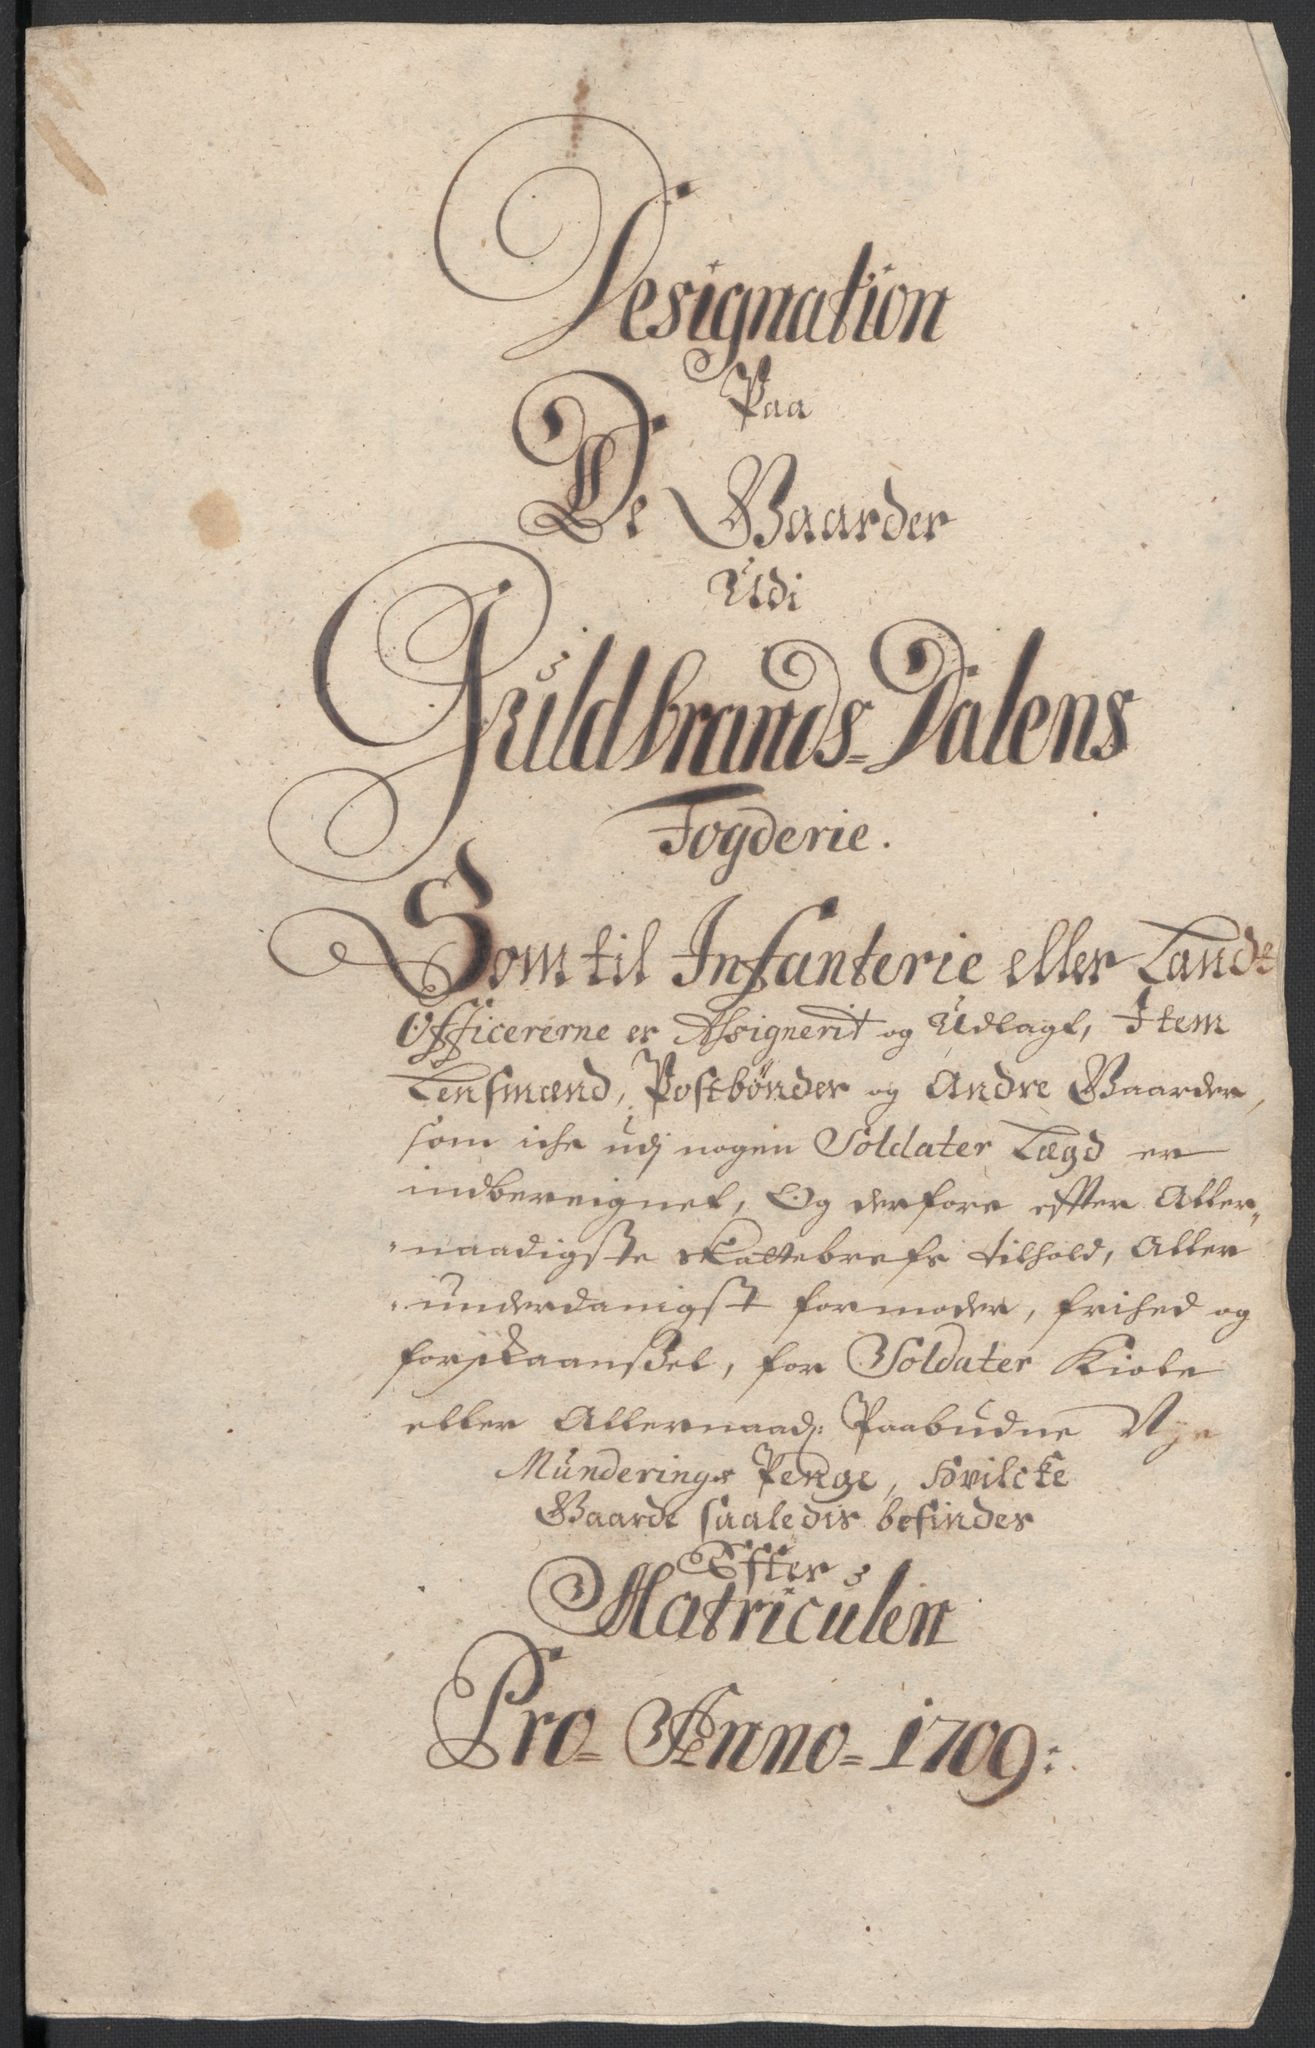 Designation
Paa
De Gaarder
Udi
Guldbrands=Dalens
Fogderie.
Som til Infanterie eller Land=
Officererne er Assignerit og Udlagt, Item
Lensmænd, Postbønder og Andre Gaarder,
som iche udj nogen Soldater Lægd er
indbereignet, Og derfore effter Aller=
naadigste Skattebrefs tilhold, Aller
underdanigst formoder, frihed og
forskaanssel, for Soldater Kiole
eller Allernaad: Paabudne Nye
Munderings Penge, Hvilcke
Gaarde saaledis befindes
Efter
Matriculen
Pro= Anno= 1709: